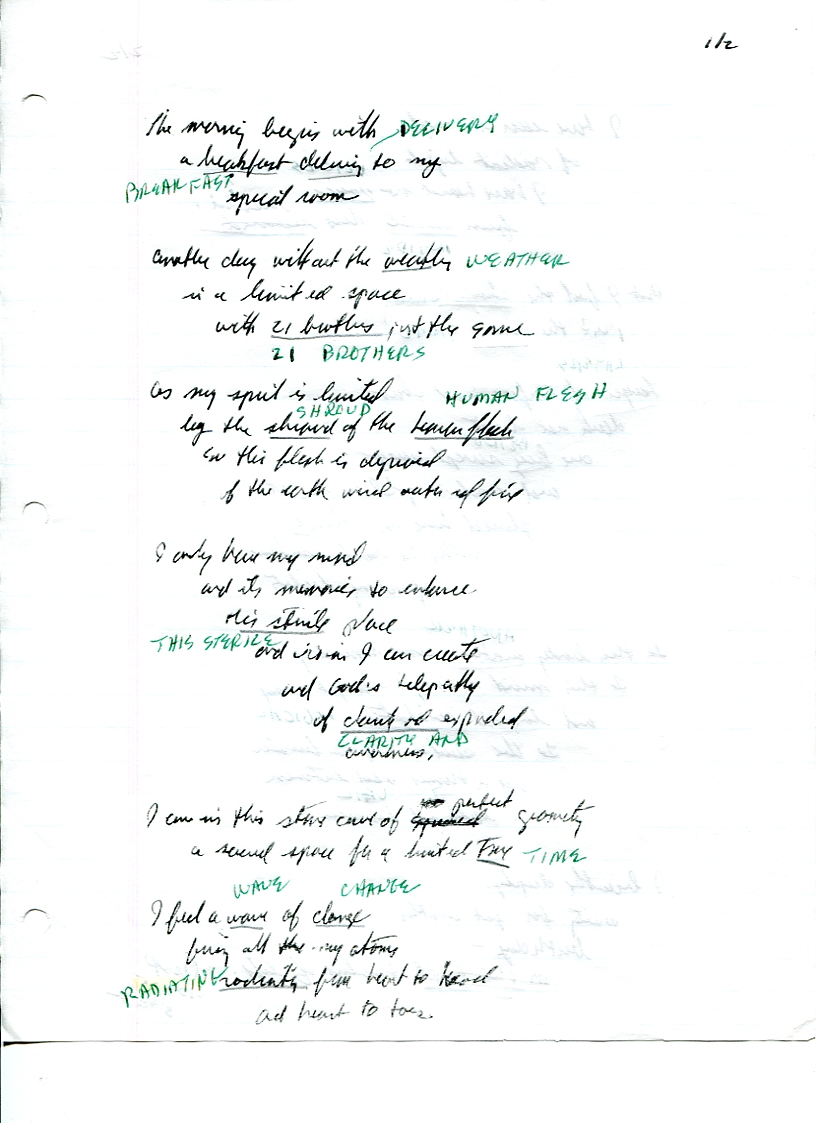 1/2
The morning begins with DELIVERY
a breakfast delivery to my
BREAKFAST
special room
another day without the weather WEATHER
in a limited space
with 21 brothers just the same
21 BROTHERS
as my spirit is limited HUMAN FLESH
SHROUD
by the shroud of the human flesh
so this flesh is deprived
of the earth wind water and fire
I only have my mind
and its memories to enhance
this sterile place
THIS STERILE
and vision I can create
and God's telepathy
of clarity and expanded
CLARITY AND
awareness,
perfect
I am in this stone cave of geometry
a sacred space for a limited Time TIME
WAVE CHANGE
I feel a wave of change
all my atoms
RADIATING radiating from heart to head
and heart to toes.